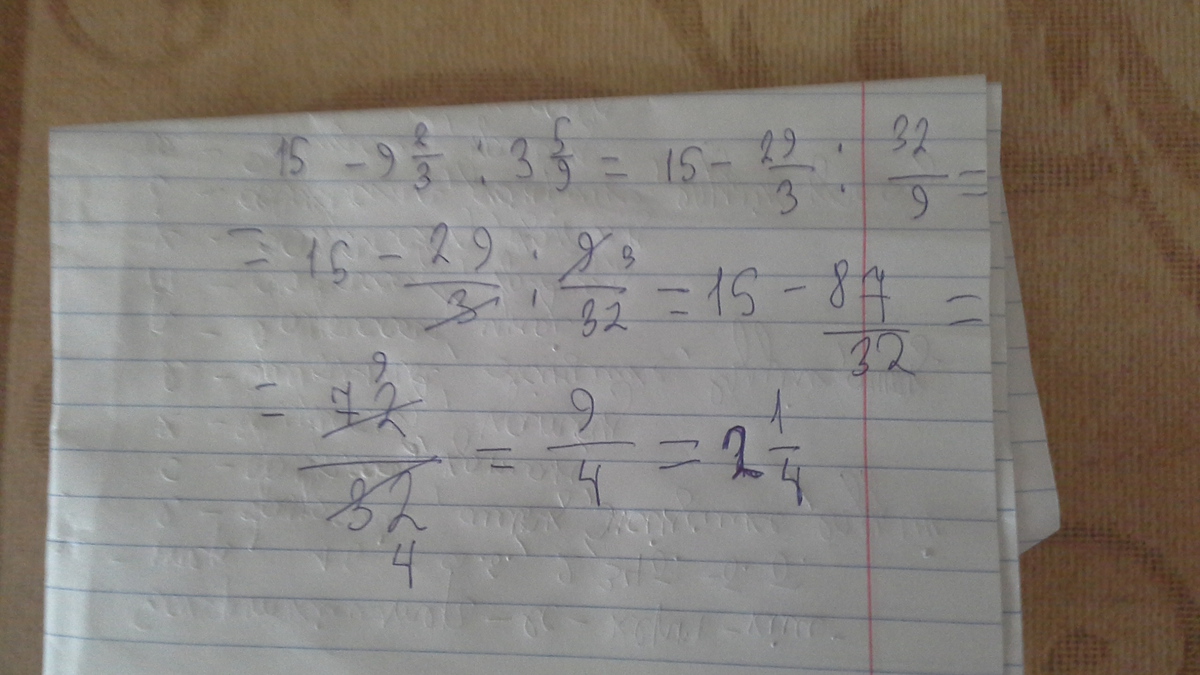 15 - 9 2/3 : 3 5/9 = 15 - 29/3 : 32/9 =
= 15 - 29/3 : 9 3/32 = 15 - 87/32 =
= 72 9/32 4 = 9/4 = 2 1/4